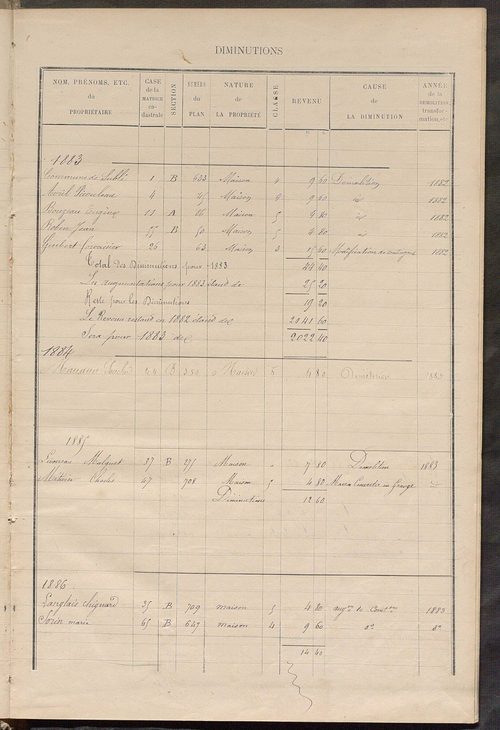 DIMINUTIONS
NOM, PRÉNOMS, ETC. du PROPRIÉTAIRE | CASE de la MATRICE cadastrale | SECTION | NUMÉRO du PLAN | NATURE de LA PROPRIÉTÉ | CLASSE | REVENU | CAUSE de LA DIMINUTION | ANNÉE de la DÉMOLITION, transformation, etc.
1883
Commune de 1 B 433 Maison 4 9 60 Démolition 1882
Avril 4 45 Maison 4 9 60 d° 1882
Eugène 11 A 16 Maison 5 4 80 d° 1882
Robin Jean 55 B 50 Maison 5 4 80 d° 1882
26 63 Maison 3 15 60 Modification de 1882
Total des Diminutions pour 1883 44 40
Les augmentations pour 1883 étant de 25 20
Reste pour les Diminutions 19 20
Le Revenu restant en 1882 étant de 2041 60
Sera pour 1883 de 2022 40
1884
Charles 24 B Maison 5 4 80 Démolition 1883
1885
37 B 275 Maison 7 80 Démolition 1883
Métivier Charles 47 708 Maison 5 4 80 Maison Convertie en Grange
Diminutions 12 60
1886
Langlais 35 B 709 maison 5 4 80 1883
Sorin marie 65 B 647 maison 4 9 60 d° d°
14 40